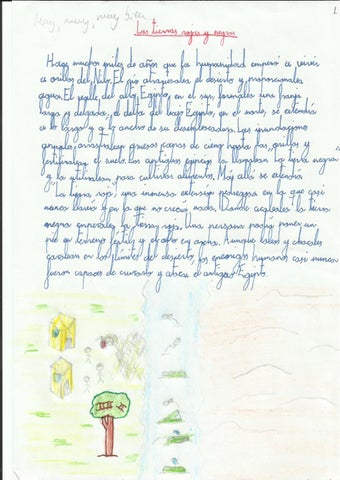 Muy, muy, muy bien
1
Las tierras rojas y negras
Hace muchos miles de años que la humanidad empezó a vivir
a orillas del Nilo. El río atravesaba el desierto y proporcionaba
agua. El valle del alto Egipto, en el sur, formaba una franja
larga y delgada, el delta del bajo Egipto, en el norte, se extendía
a lo largo y a lo ancho de su desembocadura. Las inundaciones
anuales arrastraban gruesas capas de cieno hasta las orillas y
fertilizaban el suelo. Los antiguos egipcios la llamaban "La tierra negra"
y la utilizaban para cultivar alimentos. Más allá se extendía
"La tierra roja", una inmensa extensión pedregosa en la que casi
nunca llovía y en la que no crecía nada. Donde acababa la tierra
negra empezaba la tierra roja. Una persona podía poner un
pie en terreno fértil y el otro en arena. Aunque leones y chacales
cazaban en los límites del desierto, los enemigos humanos casi nunca
fueron capaces de cruzarlo y atacar el antiguo Egipto.